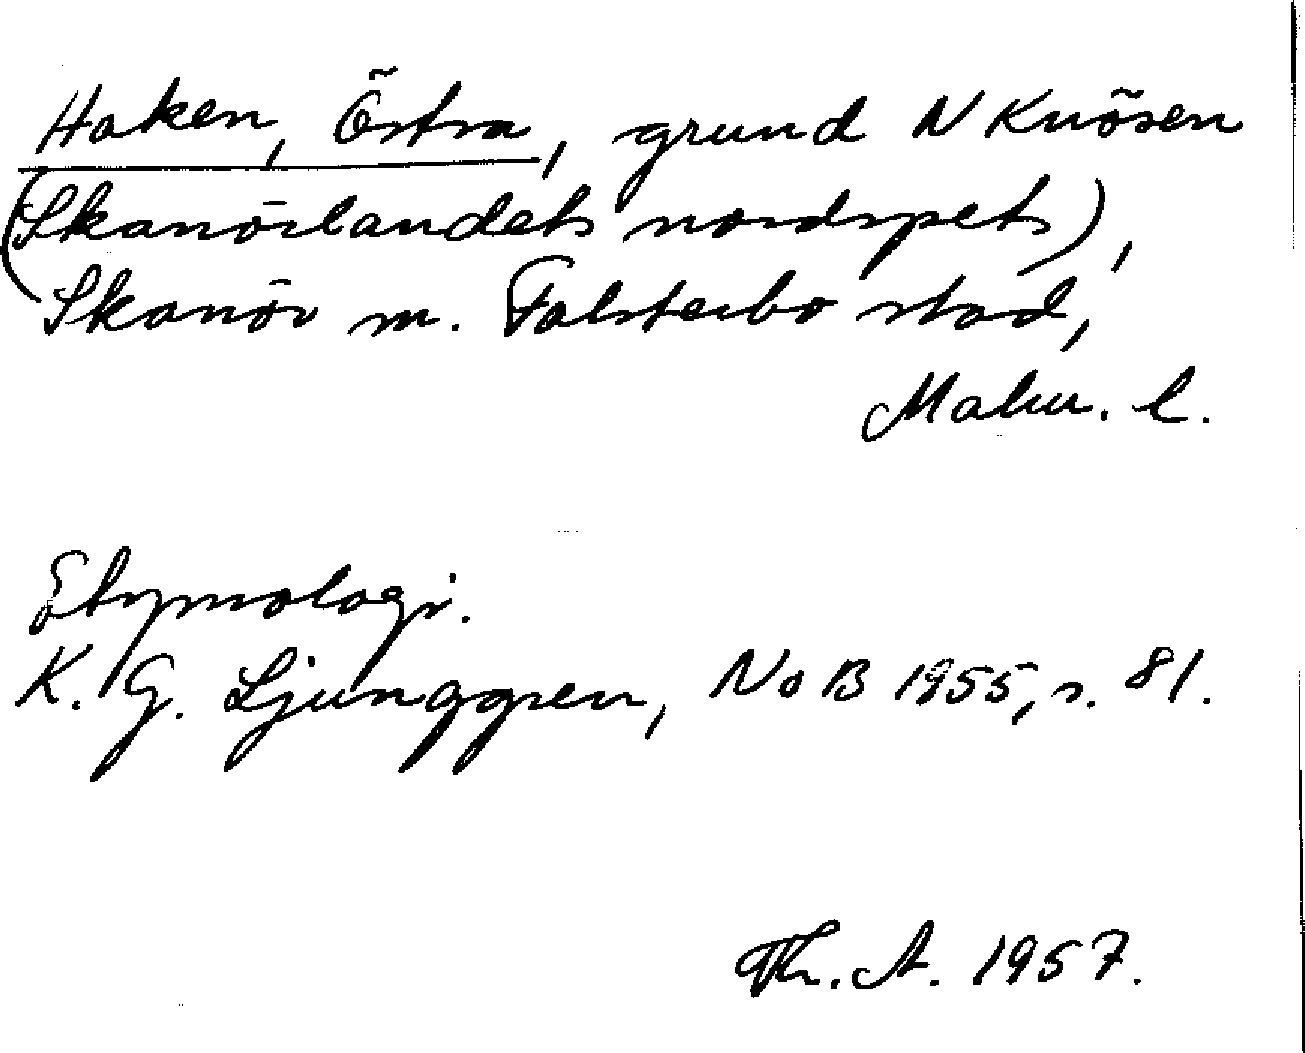 Haken, Östra, grund N Knösen
(Skanörlandets nordspets),
Skanör m. Falsterbo stad,
Malm. l.
Etymologi.
K. G. Ljunggren, NoB 1955, s. 81.
Th. A. 1957.